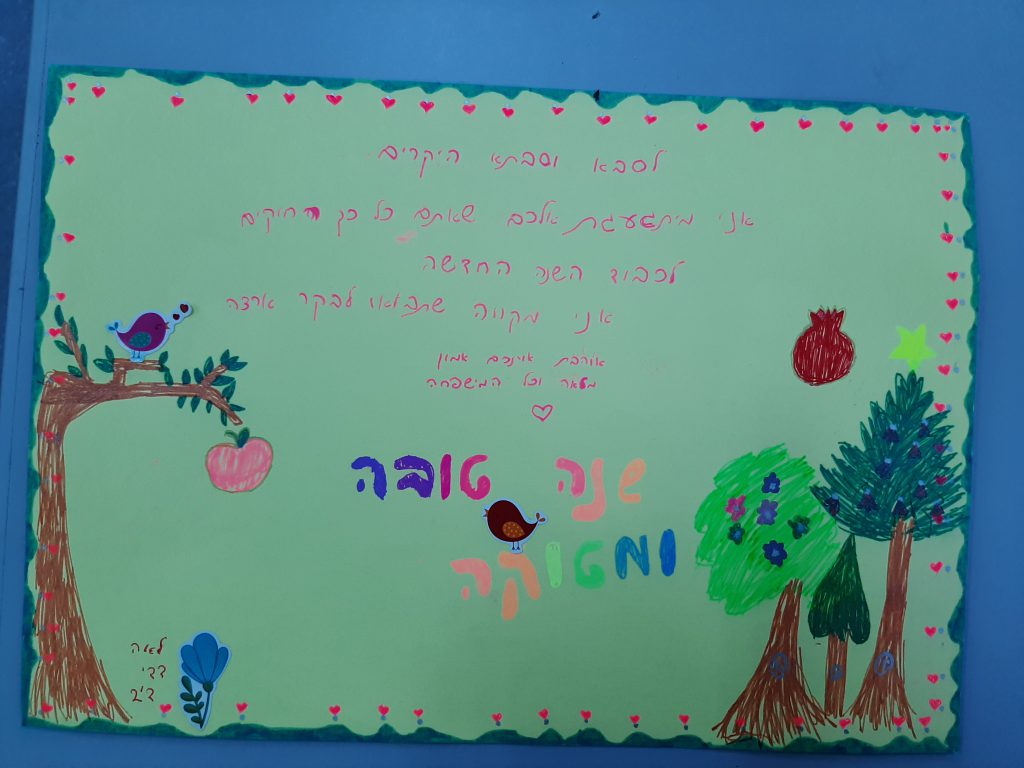 לסבא וסבתא היקרים
אני מיתגעגת אלכם שאתם כל כך רחוקים
לכבוד השנה החדשה
אני מקווה שתבואו לבקר ארצה
אוהבת אתכם אמון
מלאה וכל המישפחה
שנה טובה
ומטוקה
לאה
דדי
ד'2